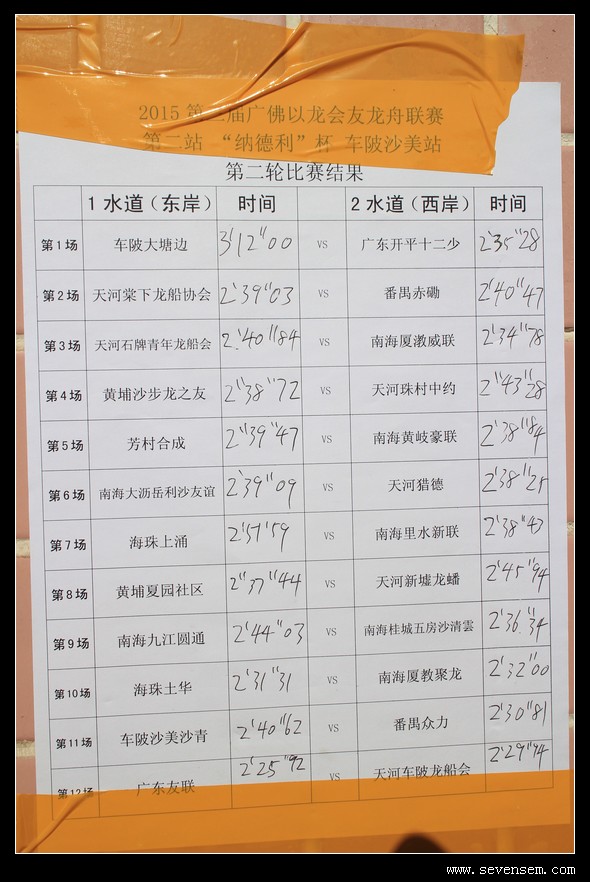 2015 第二届广佛以龙会友龙舟联赛
第二站 “纳德利”杯 车陂沙美站
第二轮比赛结果
1水道（东岸） 时间 2水道（西岸） 时间
第1场 车陂大塘边 3'12"00 VS 广东开平十二少 2'35"28
第2场 天河棠下龙船协会 2'39"03 VS 番禺赤磡 2'40"47
第3场 天河石牌青年龙船会 2'40"84 VS 南海厦漖威联 2'34"78
第4场 黄埔沙步龙之友 2"38"72 VS 天河珠村中约 2"43"28
第5场 芳村合成 2"39"47 VS 南海黄岐豪联 2'38"84
第6场 南海大沥岳利沙友谊 2'39"09 VS 天河猎德 2'38"25
第7场 海珠上涌 2'37'59 VS 南海里水新联 2'38"43
第8场 黄埔夏园社区 2"37"44 VS 天河新墟龙蟠 2'45"94
第9场 南海九江圆通 2'44"03 VS 南海桂城五房沙清雲 2'36"34
第10场 海珠土华 2'31"31 VS 南海厦教聚龙 2'32"00
第11场 车陂沙美沙青 2'40"62 VS 番禺众力 2'30"81
第12场 广东友联 2'25"92 VS 天河车陂龙船会 2'29"94
www.sevensem.com